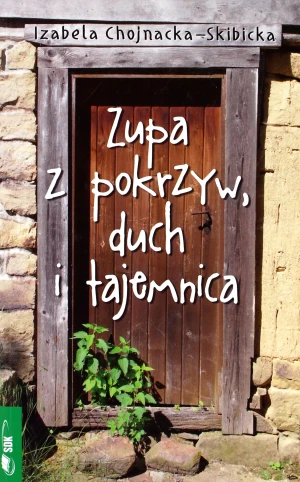 Izabela Chojnacka-Skibicka
Zupa
z pokrzyw,
duch
i tajemnica
SDK